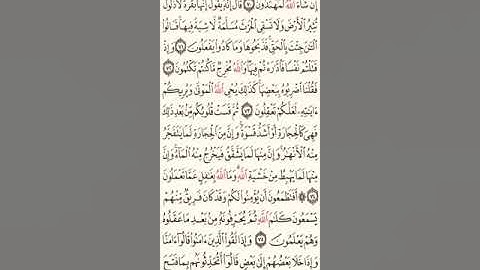 إِن شَاءَ اللَّهُ لَمُهْتَدُونَ ﴿٧٠﴾ قَالَ إِنَّهُ يَقُولُ إِنَّهَا بَقَرَةٌ لَا ذَلُولٌ
تُثِيرُ الْأَرْضَ وَلَا تَسْقِي الْحَرْثَ مُسَلَّمَةٌ لَا شِيَةَ فِيهَا قَالُوا
الْآنَ جِئْتَ بِالْحَقِّ فَذَبَحُوهَا وَمَا كَادُوا يَفْعَلُونَ ﴿٧١﴾ وَإِذْ
قَتَلْتُمْ نَفْسًا فَادَّارَأْتُمْ فِيهَا وَاللَّهُ مُخْرِجٌ مَا كُنتُمْ تَكْتُمُونَ ﴿٧٢﴾
فَقُلْنَا اضْرِبُوهُ بِبَعْضِهَا كَذَٰلِكَ يُحْيِي اللَّهُ الْمَوْتَىٰ وَيُرِيكُمْ
آيَاتِهِ لَعَلَّكُمْ تَعْقِلُونَ ﴿٧٣﴾ ثُمَّ قَسَتْ قُلُوبُكُم مِّن بَعْدِ ذَٰلِكَ
فَهِيَ كَالْحِجَارَةِ أَوْ أَشَدُّ قَسْوَةً وَإِنَّ مِنَ الْحِجَارَةِ لَمَا يَتَفَجَّرُ
مِنْهُ الْأَنْهَارُ وَإِنَّ مِنْهَا لَمَا يَشَّقَّقُ فَيَخْرُجُ مِنْهُ الْمَاءُ وَإِنَّ
مِنْهَا لَمَا يَهْبِطُ مِنْ خَشْيَةِ اللَّهِ وَمَا اللَّهُ بِغَافِلٍ عَمَّا تَعْمَلُونَ
﴿٧٤﴾ أَفَتَطْمَعُونَ أَن يُؤْمِنُوا لَكُمْ وَقَدْ كَانَ فَرِيقٌ مِّنْهُمْ
يَسْمَعُونَ كَلَامَ اللَّهِ ثُمَّ يُحَرِّفُونَهُ مِن بَعْدِ مَا عَقَلُوهُ
وَهُمْ يَعْلَمُونَ ﴿٧٥﴾ وَإِذَا لَقُوا الَّذِينَ آمَنُوا قَالُوا آمَنَّا
وَإِذَا خَلَا بَعْضُهُمْ إِلَىٰ بَعْضٍ قَالُوا أَتُحَدِّثُونَهُم بِمَا فَتَحَ